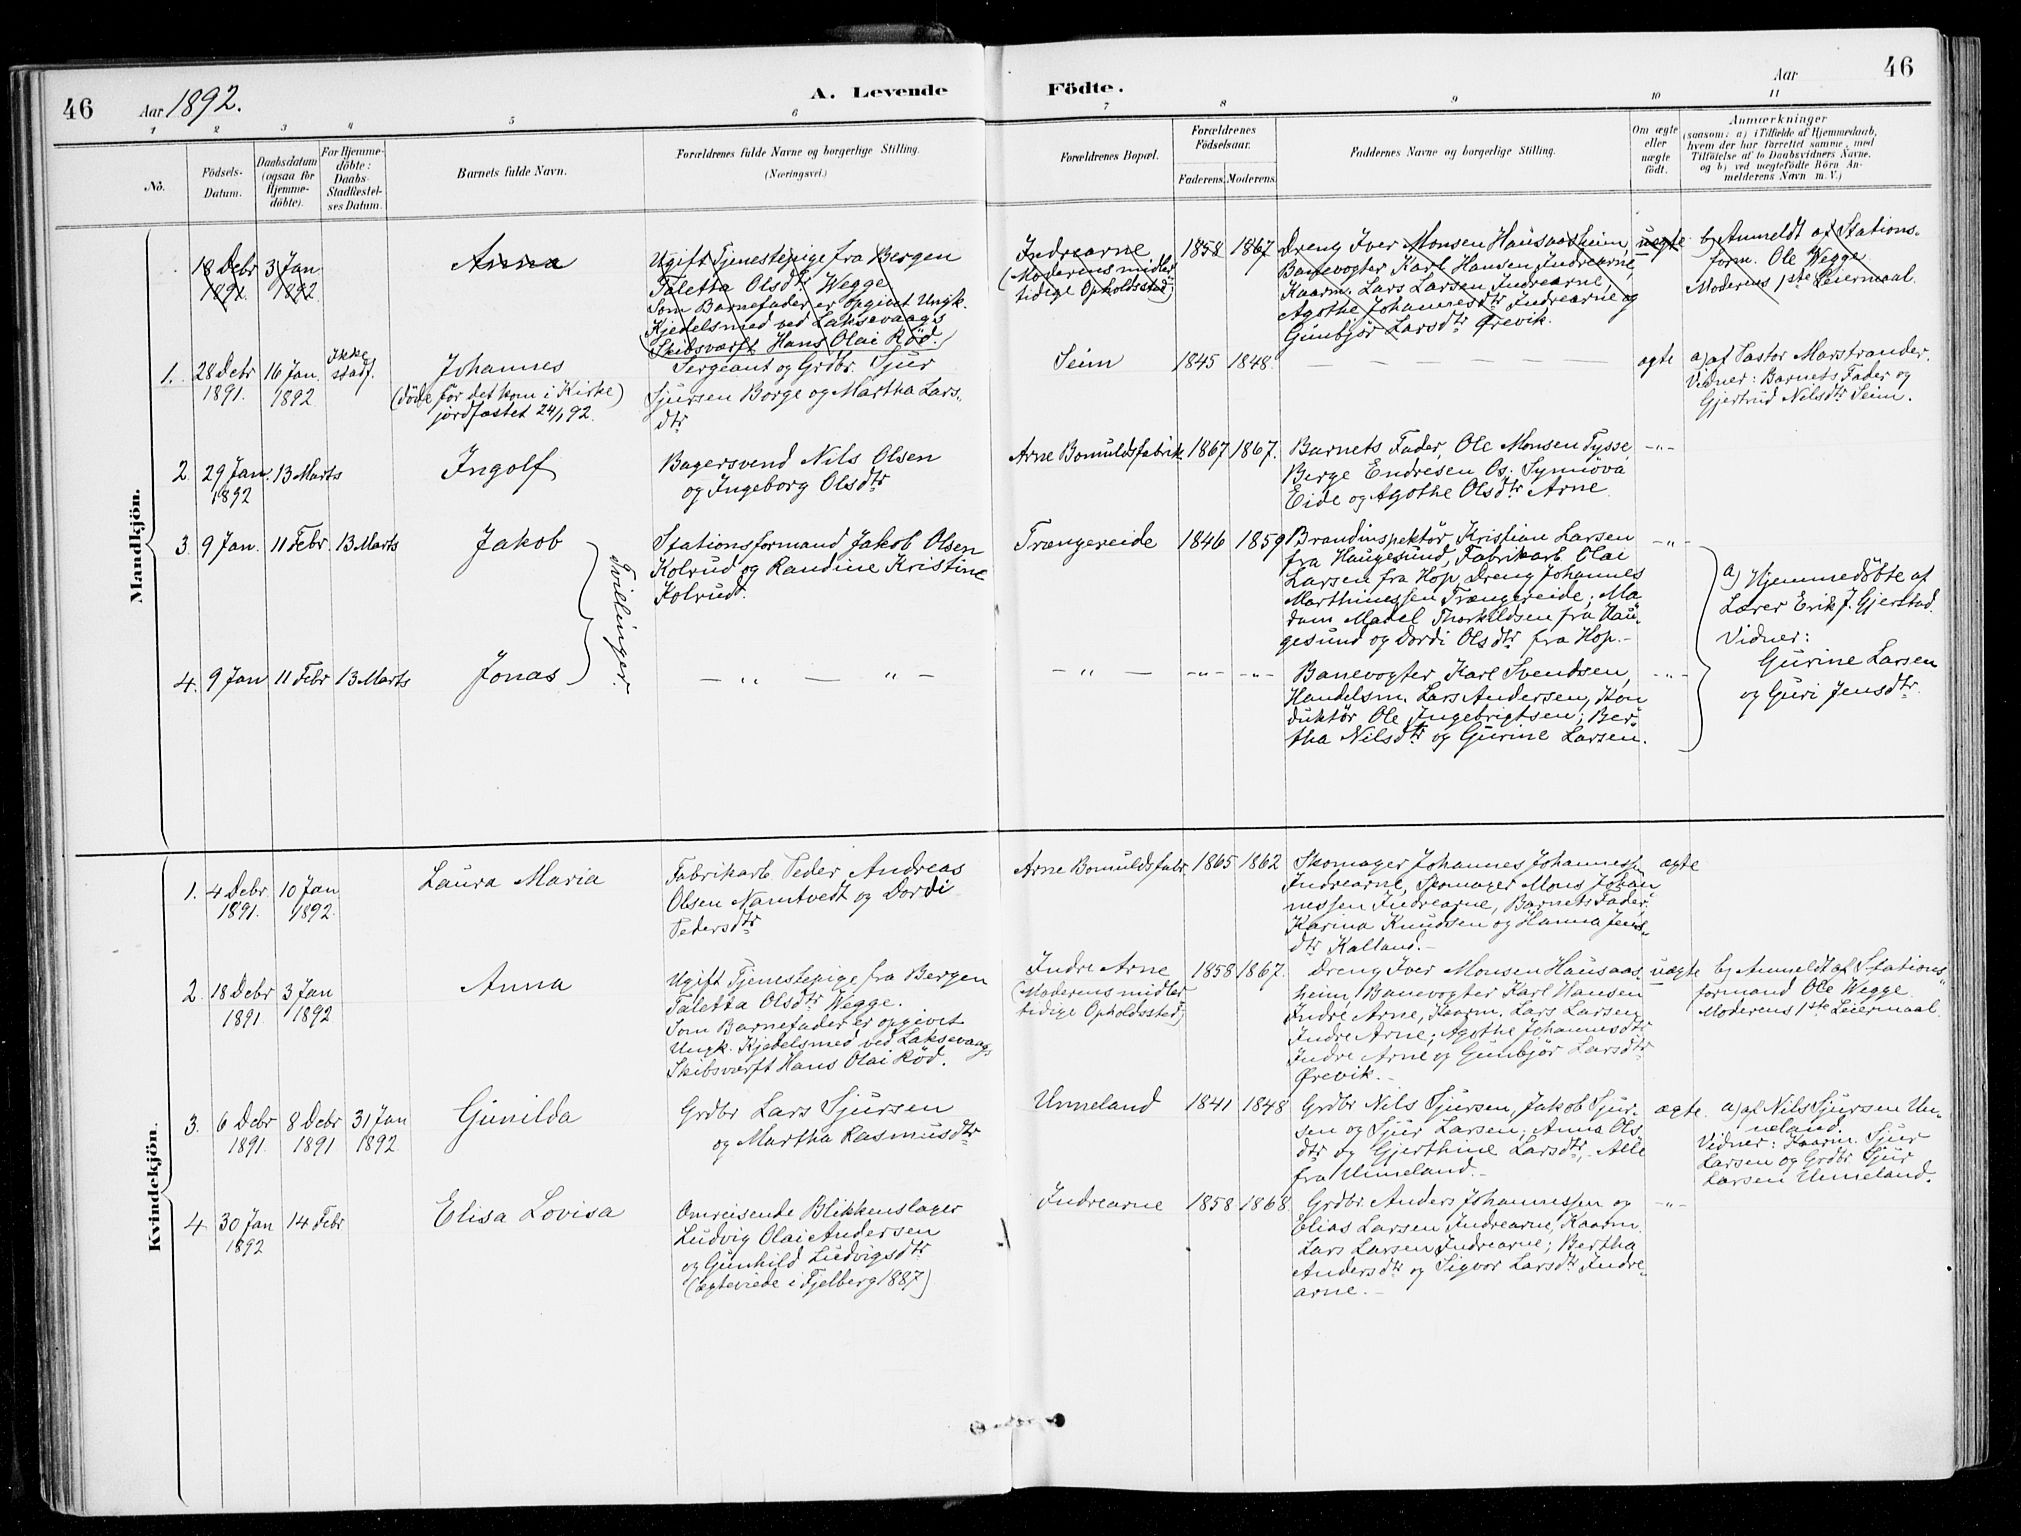 46 Aar 1892. A. Levende Födte. Aar 46
1 2 3 4 5 6 7 8 9 10 11
No. Födsels-Datum. Daabsdatum (ogsaa for Hjemme-döbte). For Hjemme-döbte: Daabs-Stadfestel-ses Datum. Barnets fulde Navn. Forældrenes fulde Navne og borgerlige Stilling. (Næringsvei.) Forældrenes Bopæl. Forældrenes Födselsaar. Faderens. Moderens. Faddernes Navne og borgerlige Stilling. Om ægte eller uægte födt. Anmærkninger (saasom: a) i Tilfælde af Hjemmedaab, hvem der har forrettet samme, med Tilföielse af to Daabsvidners Navne, og b) ved uægtefödte Börn An-melderens Navn m. V.)
Mandkjön.
18 Debr 1891. 3 Jan 1892 Anna
Ugift Tjenestepige fra Bergen
Taletta Olsdtr Wegge
(Som Barnefader er opgivet Ungk.
Kjedelsmed ved Laksevaags
Skibsværft Hans Olai Röd.)
Indrearne
(Moderens midler
tidige Opholdssted)
1858 1867
Dreng Iver Monsen Hausaasheim,
Banevogter Karl Hansen Indrearne
Kaarm. Lars Larsen Indrearne,
Agothe Johannesdtr Indrearne og
Gunbjör Larsdtr Ørevik.
uegte
b) Anmeldt af Stations-
form. Ole Wegge
Moderens 1ste Leiermaal.
1. 28 Debr 1891. 16 Jan. 1892 Ikke stadf.
Johannes
(döde för det kom i Kirke)
jordfæstet 24/1 92.
Sergeant og Grdbr. Sjur
Sjursen Borge og Martha Lars-
dtr
Seim 1845 1848. — — — — ægte
a) af Pastor Marstrander.
Vidner: Barnets Fader og
Gjertrud Nilsdtr Seim.
2. 29 Jan. 1892 13 Marts Ingolf
Bagersvend Nils Olsen
og Ingeborg Olsdtr
Arne Bomuldsfabrik. 1867 1867.
Barnets Fader, Ole Monsen Tysse,
Berge Endresen Os; Synnöva
Eide og Agothe Olsdtr Arne
-"-
3. 9 Jan. 11 Febr. 13 Marts Jakob
Tvillinger.
Stationsformand Jakob Olsen
Kolrud og Randine Kristine
Kolrud.
Trængereide 1846 1859
Brandinspektör Kristian Larsen
fra Haugesund, Fabrikarb. Olai
Larsen fra Hop, Dreng Johannes
Marthinessen Trængereide; Ma
dam Madel Thorkildsen fra Hau-
gesund og Dordi Olsdtr fra Hop.-
-"-
a) Hjemmedøbte af
Lærer Erik J. Gjerstad.
Vidner:
Gurine Larsen
og Guri Jensdtr.
4. 9 Jan 11 Febr 13 Marts Jonas — " — " — — " — -"- -"-
Banevogter Karl Svendsen,
Handelsm. Lars Andersen, Kon
duktör Ole Ingebrigtsen; Ber-
tha Nilsdtr og Gurine Larsen.
-"-
Kvindekjön.
1. 4 Debr 1891. 10 Jan 1892. Laura Maria
Fabrikarb. Peder Andreas
Olsen Namtvedt og Dordi
Pedersdtr
Arne Bomuldsfabr. 1865 1862
Skomager Johannes Johanness.
Indrearne, Skomager Mons Johan
nessen Indrearne, Barnets Fader,
Karina Knudsen og Hanna Jens-
dtr Kalland.-
ægte
2. 18 Debr 1891 3 Jan 1892 Anna
Ugift Tjenestepige fra Bergen
Taletta Olsdtr Wegge.
Som Barnefader er opgivet
Ungk. Kjedelsmed ved Laksevaags
Skibsværft Hans Olai Röd.
Indre Arne
(Moderens midler
tidige Opholdssted)
1858 1867.
Dreng Iver Monsen Hausaas
heim, Banevogter Karl Hansen
Indre Arne, Kaarm. Lars Larsen
Indre Arne; Agothe Johannesdtr
Indre Arne og Gunbjör Larsdtr
Ørevik.-
uægte
b) Anmeldt af Stations-
formand Ole Wegge
Moderens 1ste Leiermaal.
3. 6 Debr 1891. 8 Debr 1891 31 Jan 1892. Gunilda
Grdbr Lars Sjursen
og Martha Rasmusdtr
Unneland 1841 1848
Grdbr Nils Sjursen, Jakob Sjur-
sen og Sjur Larsen; Anna Ols
dtr og Gjerthine Larsdtr, Alle
fra Unneland.-
ægte.
a) af Nils Sjursen Un-
neland.
Vidner: Kaarm. Sjur
Larsen og Grdbr Sjur
Larsen Unneland.
4. 30 Jan 1892 14 Febr Elisa Lovisa
Omreisende Blikkenslager
Ludvig Olai Andersen
og Gunhild Ludvigsdtr
(ægteviede i Fjelberg 1887)
Indrearne 1858 1868.
Grdbr Anders Johannessen og
Elias Larsen Indrearne, Kaarm.
Lars Larsen Indrearne; Bertha
Andersdtr og Sigvor Larsdtr Indre-
arne.-
-"-